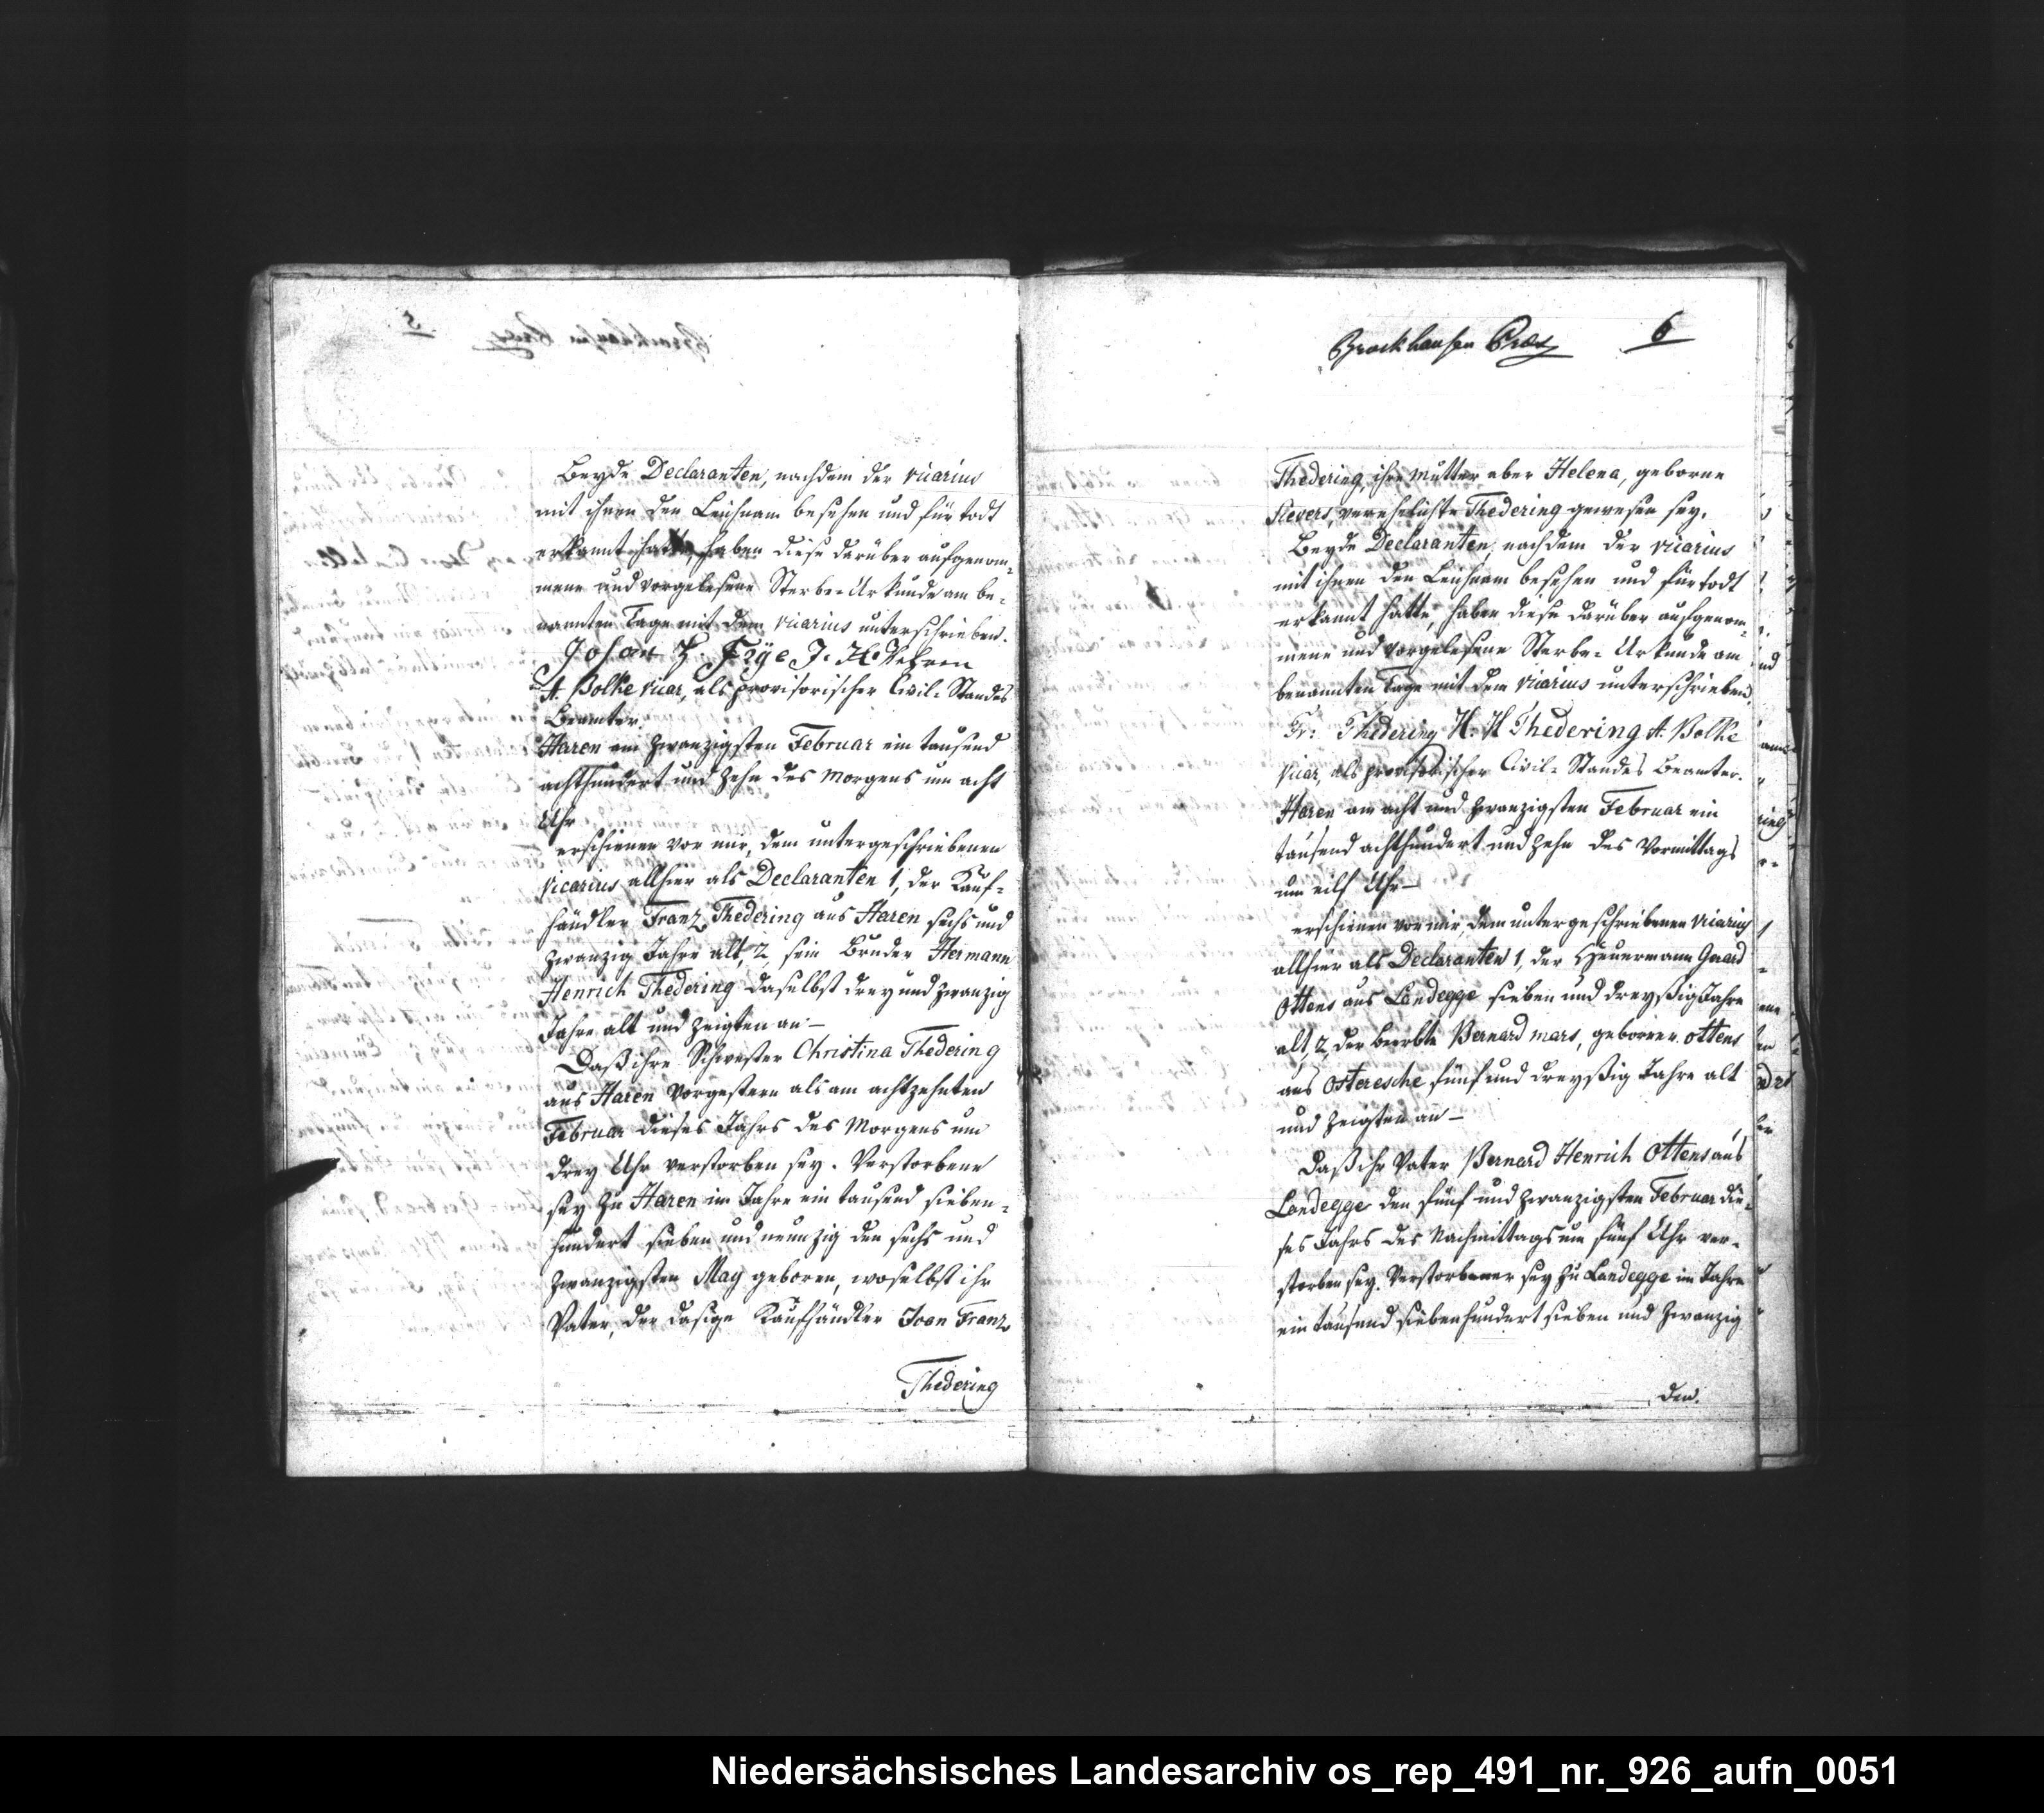 Beyde Declaranten, nachdem der vicarius
mit ihnen den Leichnam besehen und für todt
erkannt hatte, haben diese darüber aufgenom-
mene und vorgelesene Sterbe-Urkunde am be-
nannten Tage mit dem vicarius unterschrieben.
Johan H. Frÿe J. H. Vehren
A. Bolke vicar, als provisorischer Civil-Standes
Beamter.
Haren am zwanzigsten Februar ein tausend
achthundert und zehn des Morgens um acht
Uhr
erschienen vor mir, dem untergeschriebenen
Vicarius allhier als Declaranten 1, der Kauf-
händler Franz Thedering aus Haren sechs und
zwanzig Jahre alt, 2, sein Bruder Hermann
Henrich Thedering daselbst drey und zwanzig
Jahre alt und zeigten an —
Daß ihre Schwester Christina Thedering
aus Haren vorgestern als am achtzehnten
Februar dieses Jahrs des Morgens um
drey Uhr verstorben sey. Verstorbene
sey zu Haren im Jahre ein tausend sieben-
hundert sieben und neunzig den sechs und
zwanzigsten May geboren, woselbst ihr
Vater, der dasige Kaufhändler Joan Franz
Thedering
Brockhausen 6
Thedering, ihre Mutter aber Helena, geborne
Sievers, verehelichte Thedering gewesen sey.
Beyde Declaranten, nachdem der vicarius
mit ihnen den Leichnam besehen und für todt
erkannt hatte, haben diese darüber aufgenom-
mene und vorgelesene Sterbe-Urkunde am
benannten Tage mit dem vicarius unterschrieben.
Fr: Thedering H. H Thedering A. Bolke
vicar, als provisorischer Civil-Standes Beamter.
Haren am acht und zwanzigsten Februar ein
tausend achthundert und zehn des Vormittags
um eilf Uhr —
erschienen vor mir, dem untergeschriebenen vicarius
allhier als Declaranten 1, der Heuermann Gerard
Ottens aus Landegge sieben und dreyßig Jahre
alt, 2, der beerbte Bernard mars, geborner ottens
aus osteresche fünf und dreyßig Jahre alt
und zeigten an —
Daß ihr Vater Bernard Henrich Ottens aus
Landegge den fünf und zwanzigsten Februar die-
ses Jahrs des Nachmittags um fünf Uhr ver-
storben sey. Verstorbener sey zu Landegge im Jahre
ein tausend siebenhundert sieben und zwanzig
den.
Niedersächsisches Landesarchiv os_rep_491_nr._926_aufn_0051